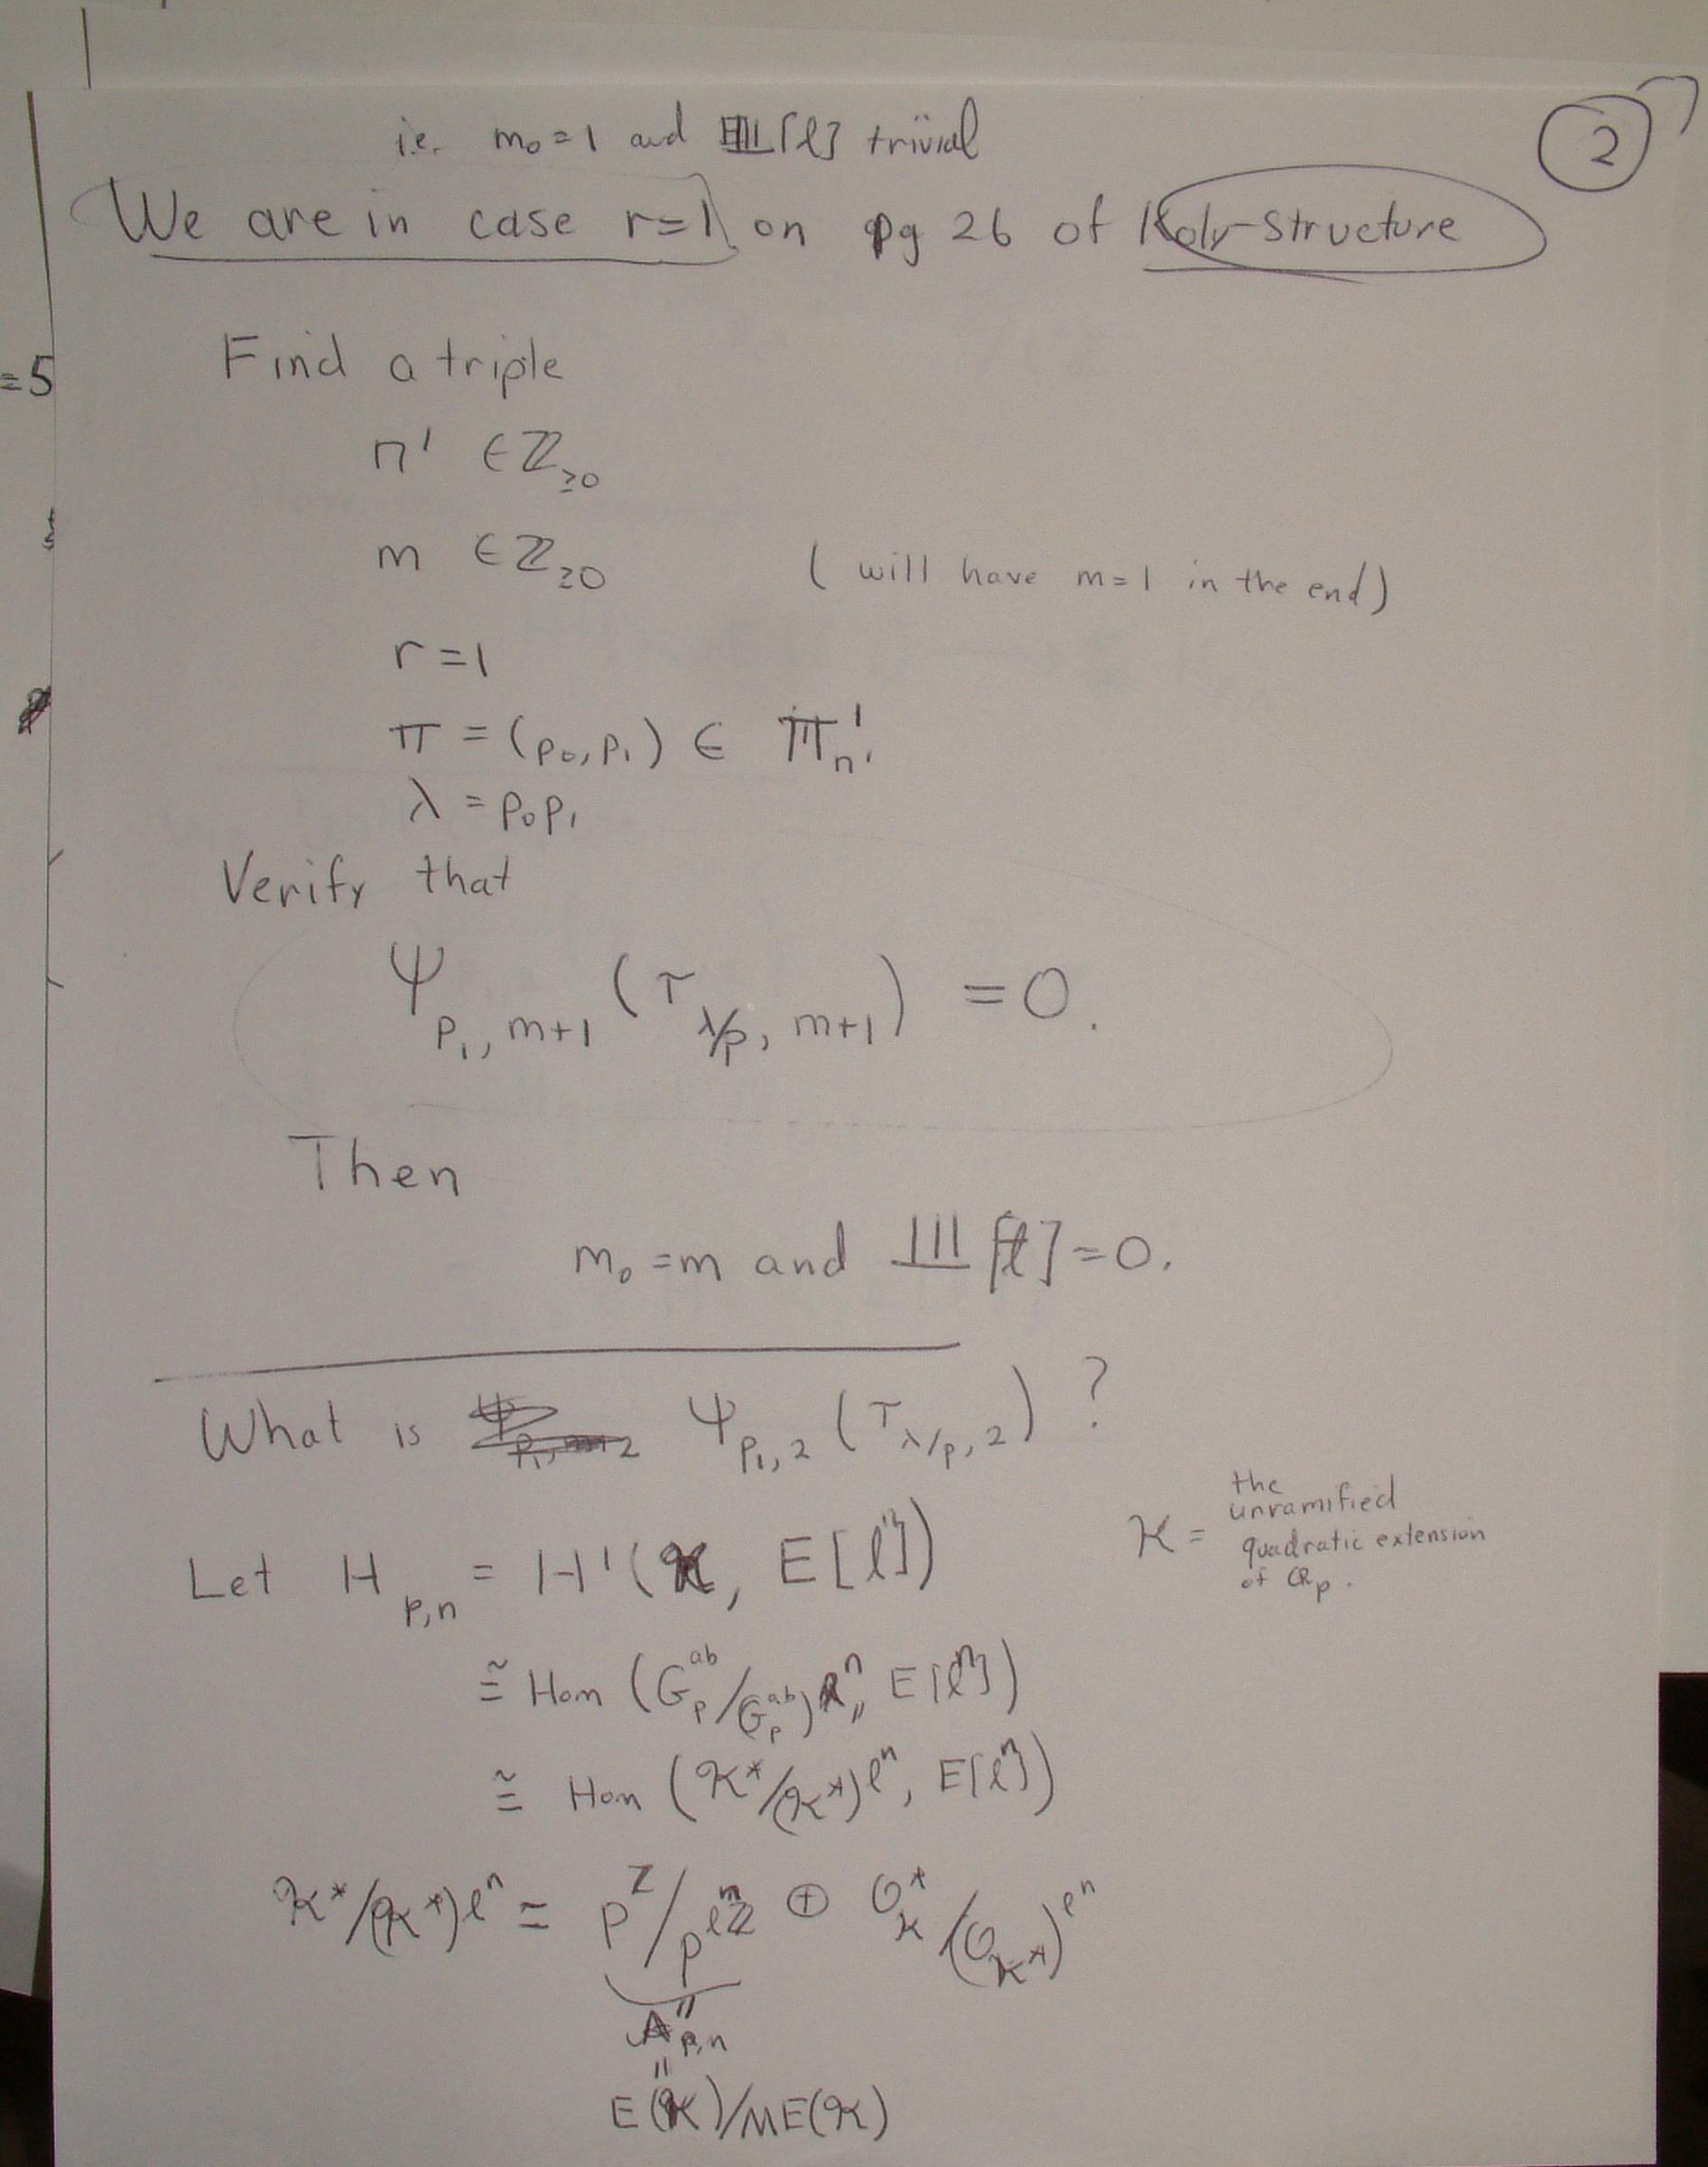 i.e. m₀ = 1 and Ш[ℓ] trivial
2
We are in case r=1 on pg 26 of Koly-structure
=5
Find a triple
n' ∈ ℤ≥0
m ∈ ℤ≥0 (will have m=1 in the end)
r = 1
π = (p₀, p₁) ∈ Π¹n'
λ = p₀p₁
Verify that
Ψ_{p₁, m+1} (τ_{λ/p₁, m+1}) = 0.
Then
m₀ = m and Ш[ℓ] = 0.
What is Ψ_{p₁,2} (τ_{λ/p,2}) ?
𝒦 = the
unramified
quadratic extension
of ℚp.
Let H_{p,n} = H¹(𝒦, E[ℓⁿ])
≅ Hom (G_p^{ab}/(G_p^{ab})ℓⁿ, E[ℓⁿ])
≅ Hom (𝒦*/(𝒦*)ℓⁿ, E[ℓⁿ])
𝒦*/(𝒦*)ℓⁿ = p^ℤ/p^{ℓⁿℤ} ⊕ O*_𝒦/(O_𝒦*)^{ℓⁿ}
A_{p,n}
E(𝒦)/ME(𝒦)